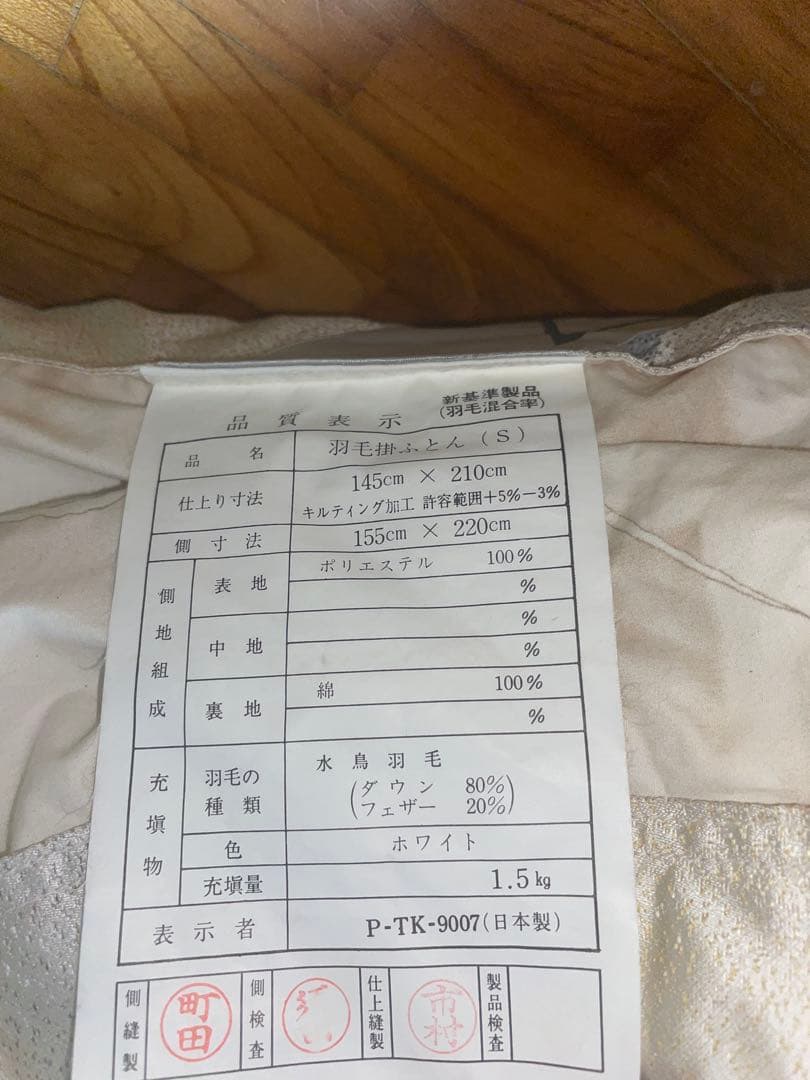 品質表示
新基準製品
(羽毛混合率)
品名 羽毛掛ふとん(S)
仕上り寸法 145cm × 210cm
キルティング加工 許容範囲+5%-3%
側寸法 155cm × 220cm
側地組成 表地 ポリエステル 100%
%
中地 %
%
裏地 綿 100%
%
充填物 羽毛の種類 水鳥羽毛
(ダウン 80%
フェザー 20%)
色 ホワイト
充填量 1.5kg
表示者 P-TK-9007(日本製)
側縫製 町田 側検査 仕上縫製 市村 製品検査